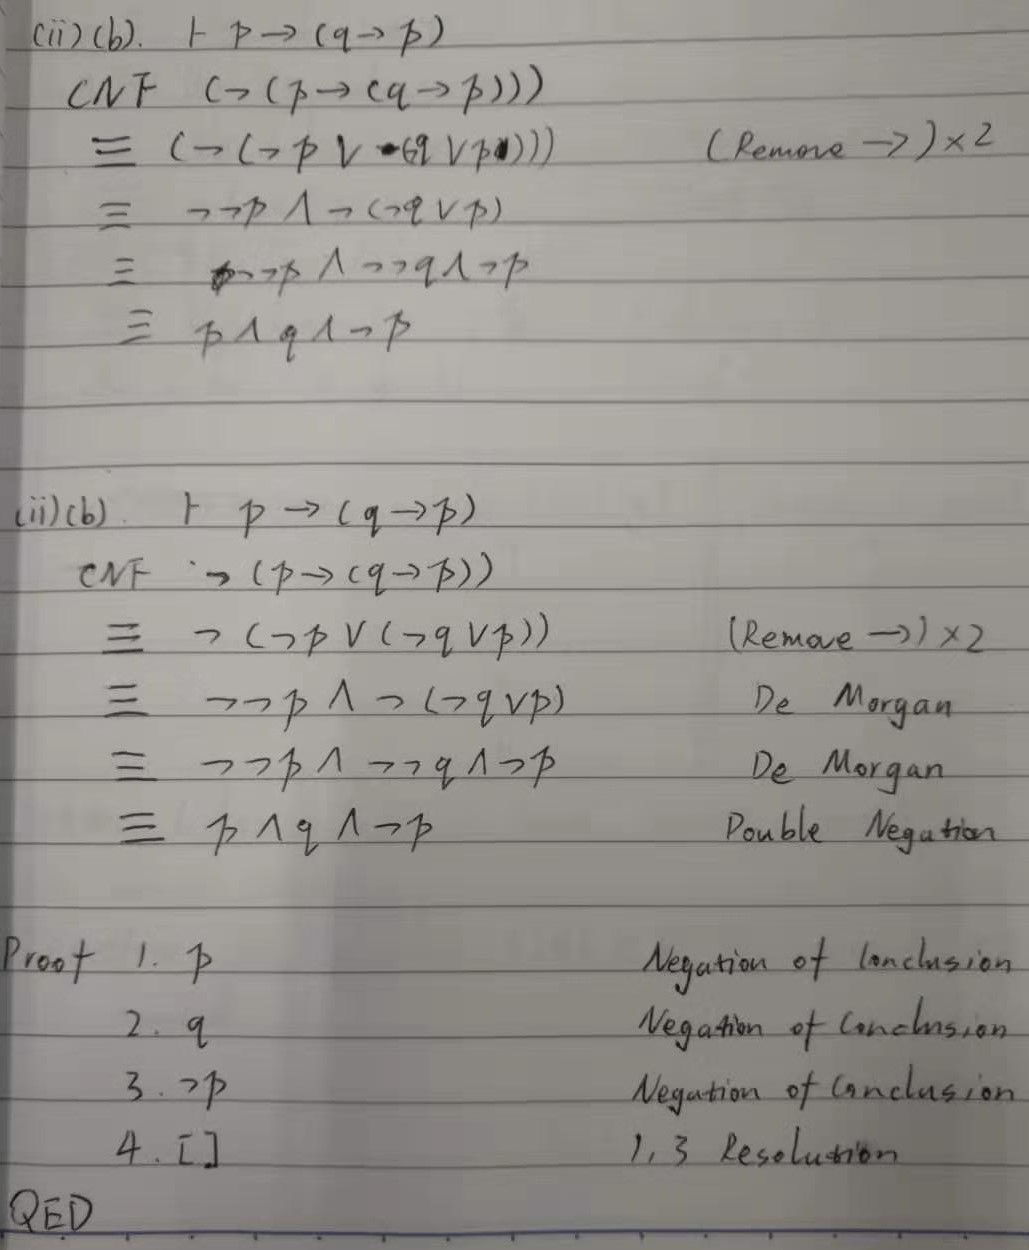 (ii)(b). ⊢ p → (q → p)
CNF (¬(p → (q → p)))
≡ (¬(¬p ∨ (q ∨ p))) (Remove →) × 2
≡ ¬¬p ∧ ¬(¬q ∨ p)
≡ ¬¬p ∧ ¬¬q ∧ ¬p
≡ p ∧ q ∧ ¬p
(ii)(b). ⊢ p → (q → p)
CNF ¬(p → (q → p))
≡ ¬(¬p ∨ (¬q ∨ p)) (Remove →) × 2
≡ ¬¬p ∧ ¬(¬q ∨ p) De Morgan
≡ ¬¬p ∧ ¬¬q ∧ ¬p De Morgan
≡ p ∧ q ∧ ¬p Double Negation
Proof 1. p Negation of Conclusion
2. q Negation of Conclusion
3. ¬p Negation of Conclusion
4. [] 1, 3 Resolution
QED